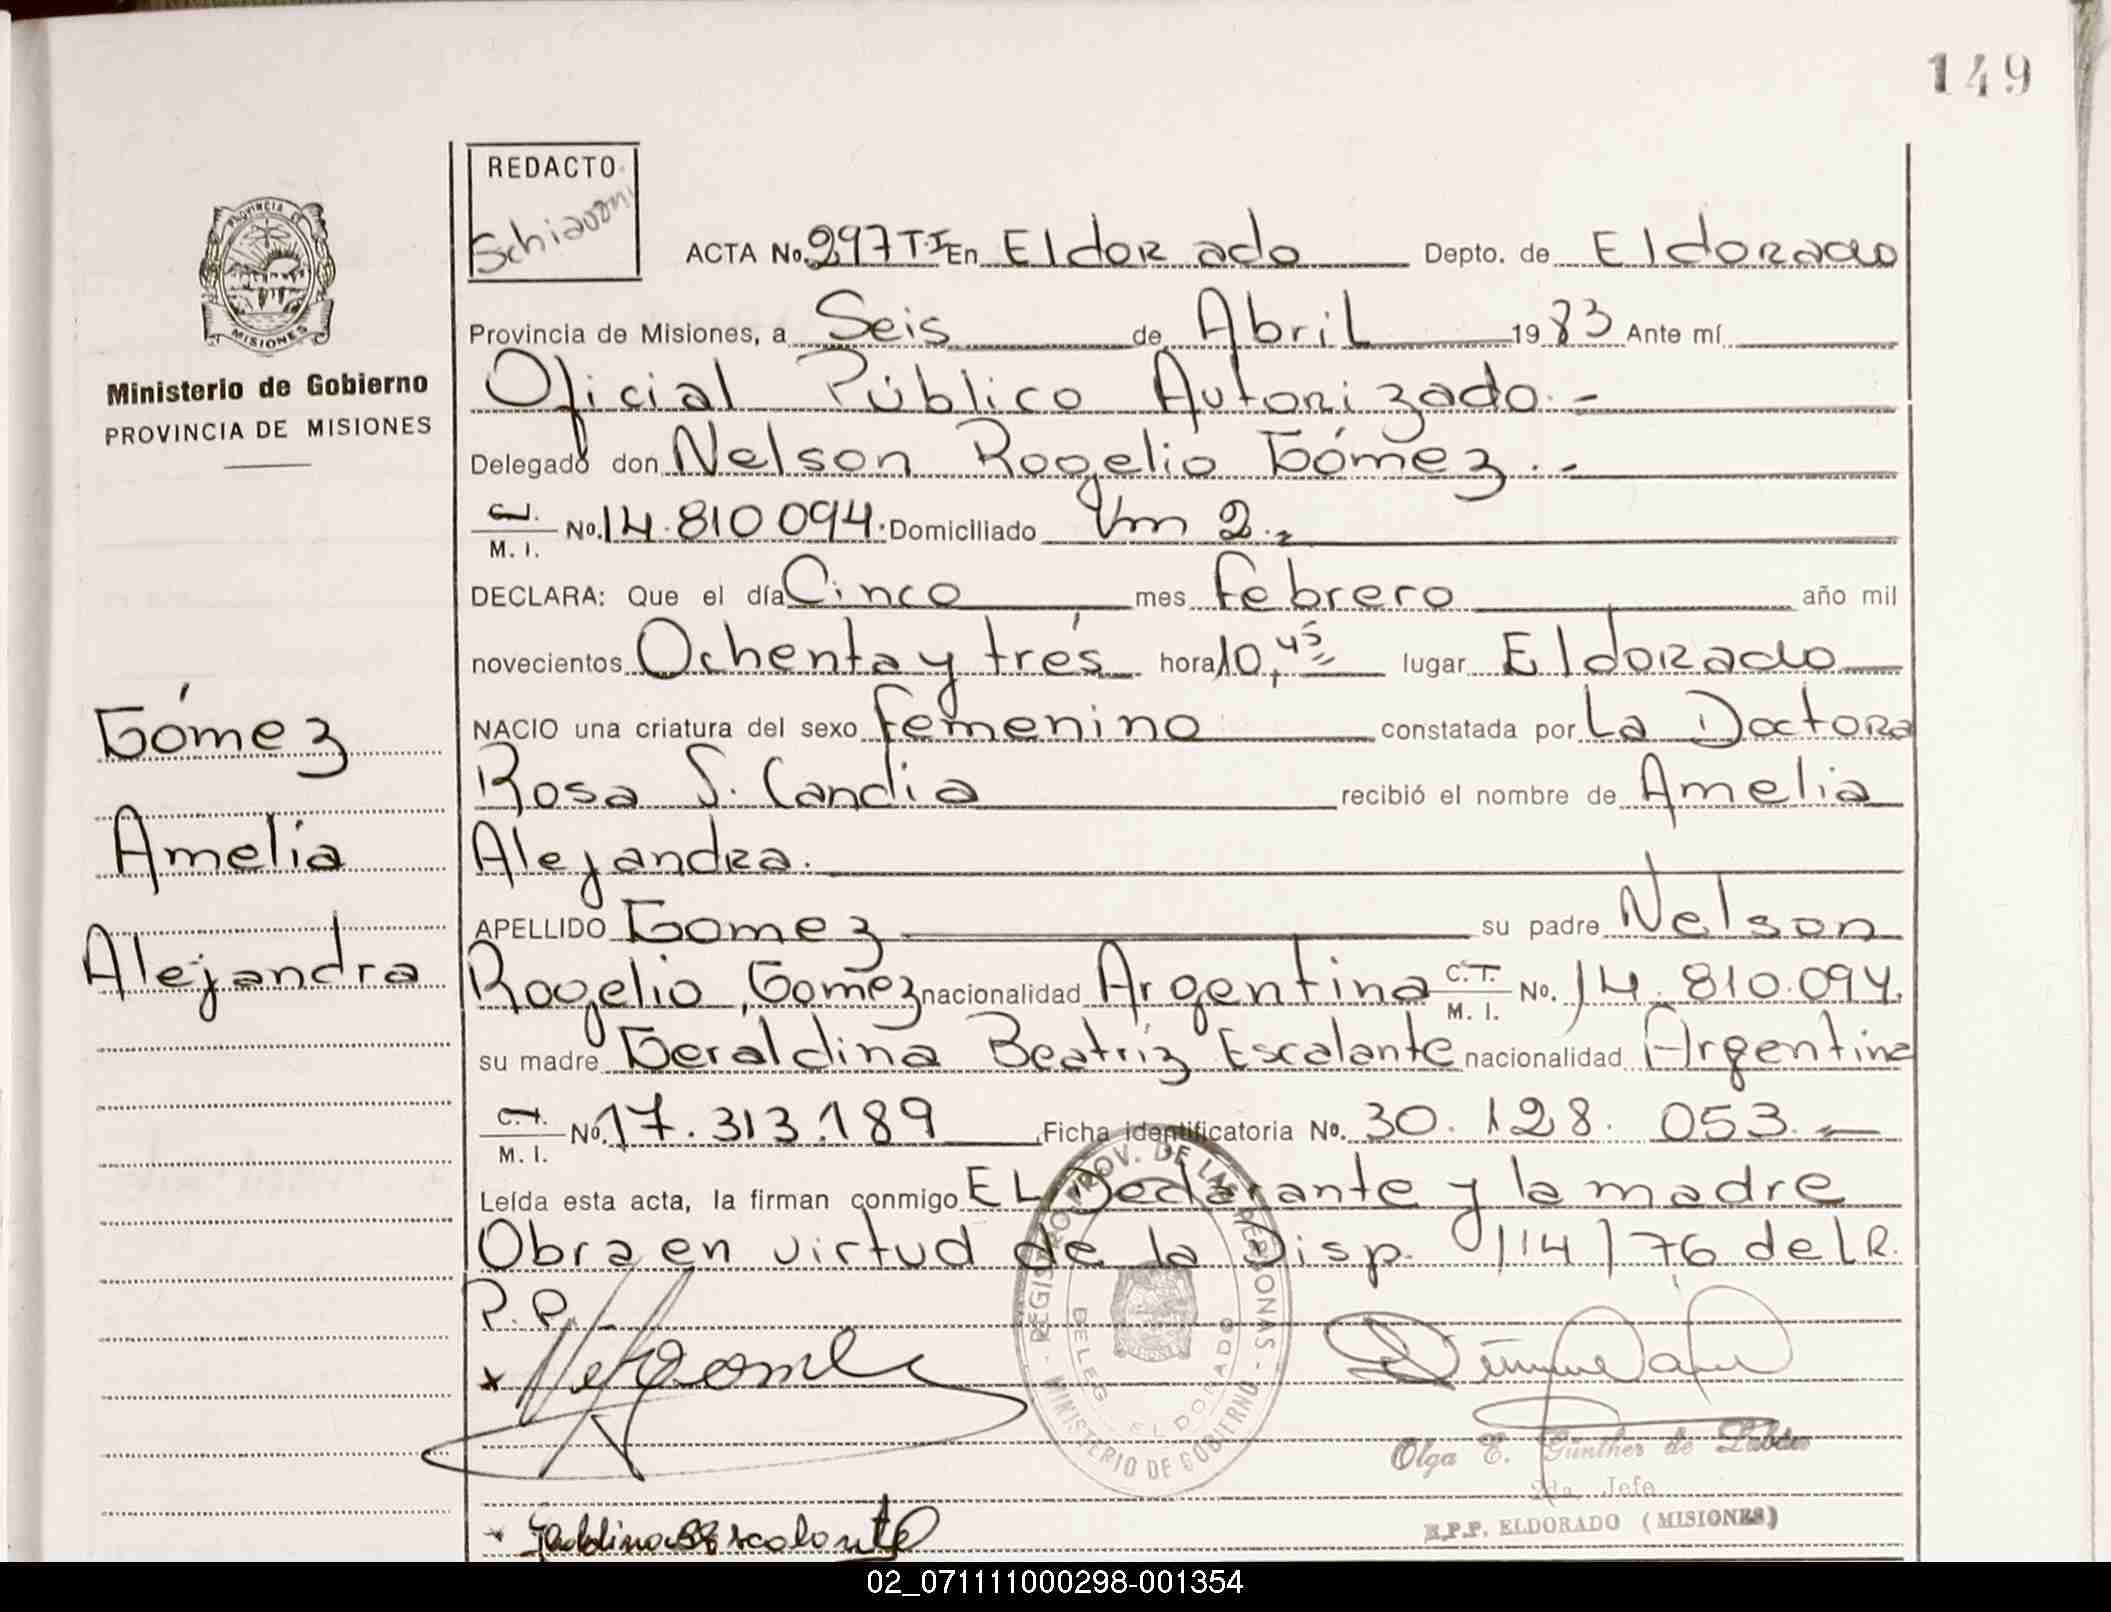 149
REDACTO
Schiavoni
PROVINCIA DE
MISIONES
Ministerio de Gobierno
PROVINCIA DE MISIONES
ACTA No. 297 T.I En Eldorado Depto. de Eldorado
Provincia de Misiones, a Seis de Abril 1983 Ante mí
Oficial Público Autorizado.-
Delegado don Nelson Rogelio Gómez.-
C.I.
M. I. No. 14.810094. Domiciliado Km 2.-
DECLARA: Que el día Cinco mes Febrero año mil
novecientos Ochenta y trés hora 10,45 lugar Eldorado
NACIO una criatura del sexo Femenino constatada por La Doctora
Rosa S. Candia recibió el nombre de Amelia
Alejandra.
APELLIDO Gomez su padre Nelson
Rogelio Gomez nacionalidad Argentina C.I.
M. I. No. 14.810.094.
su madre Geraldina Beatriz Escalante nacionalidad Argentina
C.I.
M. I. No. 17.313.189 Ficha identificatoria No. 30.128.053.-
Leída esta acta, la firman conmigo EL Declarante y la madre
Obra en virtud de la Disp. 114/76 del R.
P.P.
Gómez
Amelia
Alejandra
REGISTRO PROV. DE LAS PERSONAS
DELEG. ELDORADO
MINISTERIO DE GOBIERNO
Olga E. Günther de
2da. Jefe
R.P.P. ELDORADO (MISIONES)
Geraldina B Escalante
02_071111000298-001354